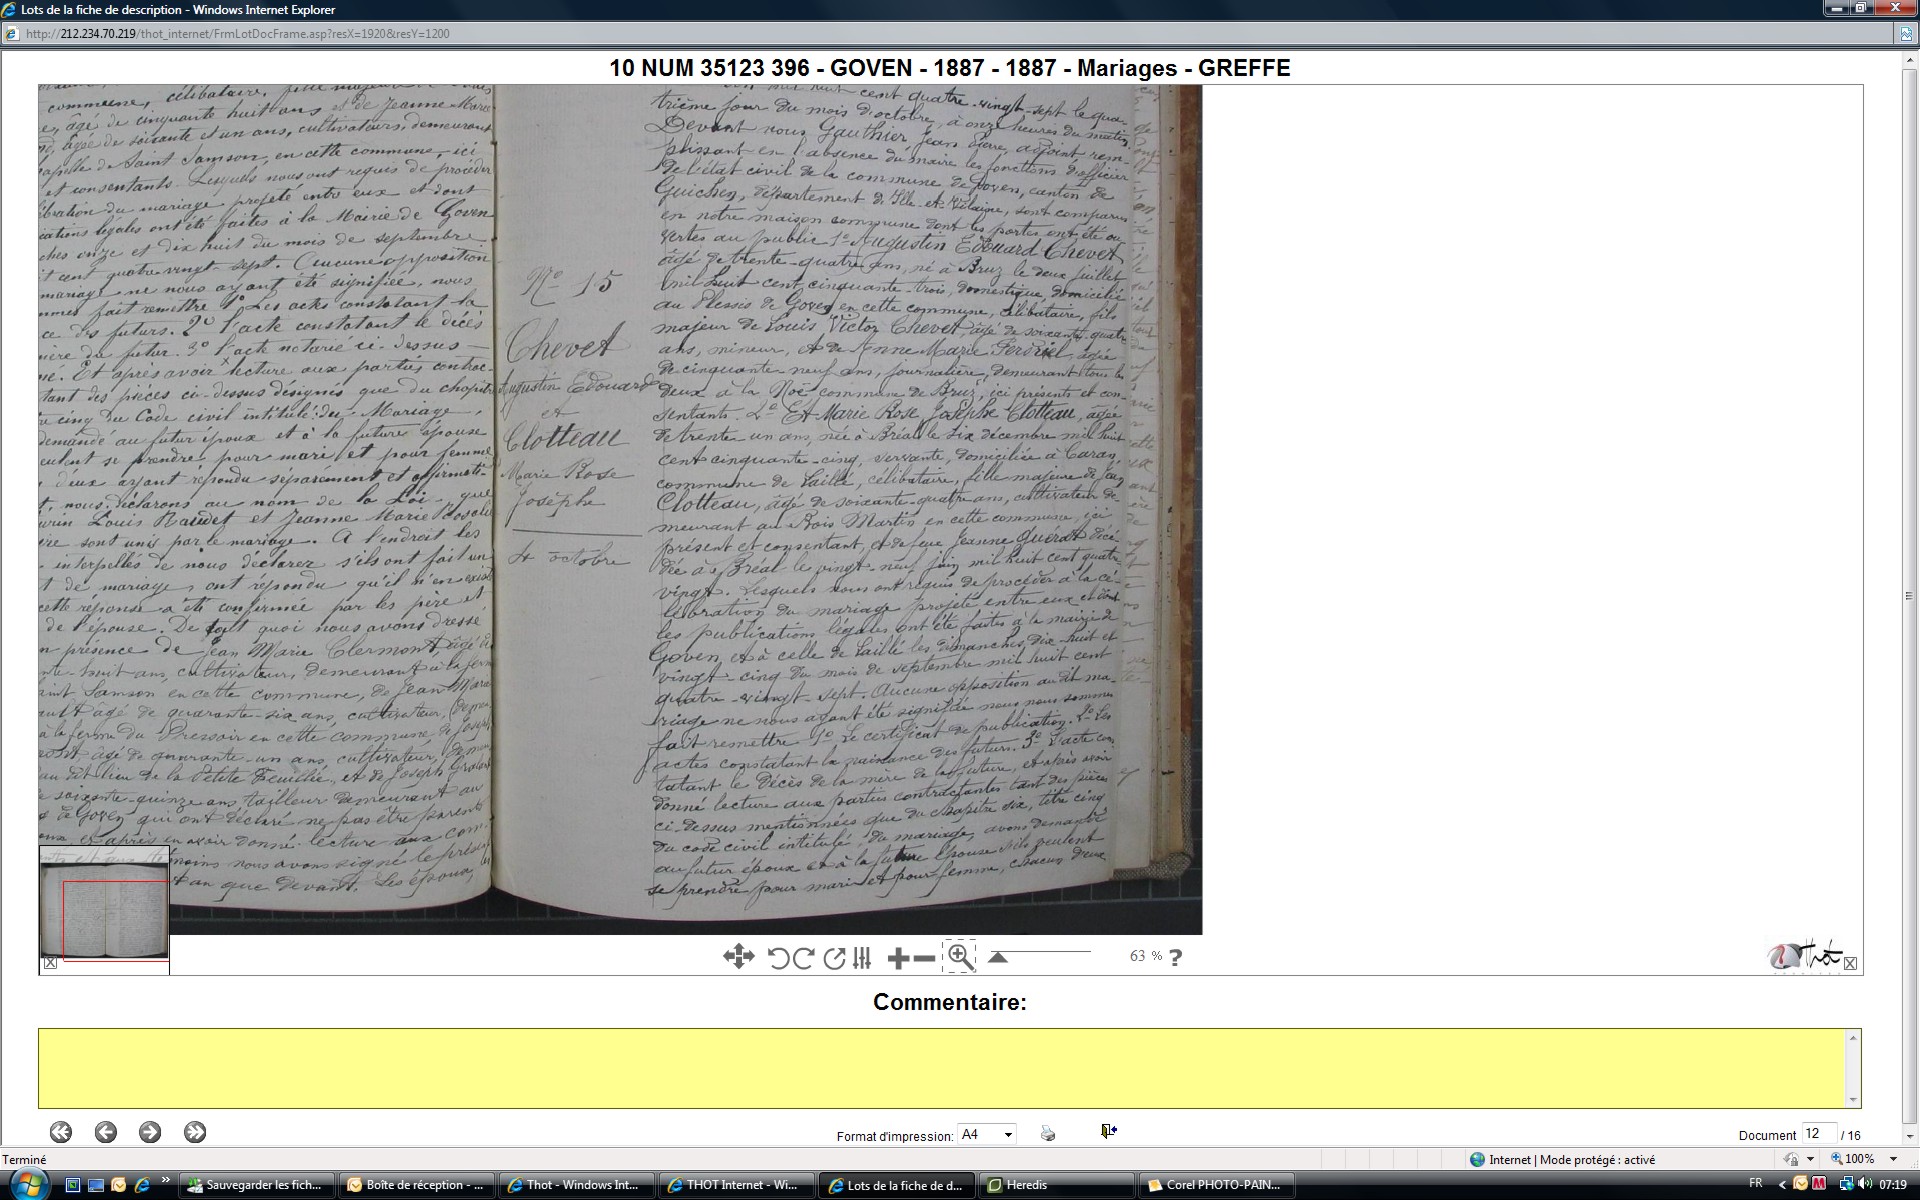 Lots de la fiche de description - Windows Internet Explorer
http://212.234.70.219/thot_internet/FrmLotDocFrame.asp?resX=1920&resY=1200
10 NUM 35123 396 - GOVEN - 1887 - 1887 - Mariages - GREFFE
commune, célibataire, fille majeure de
âgé de cinquante huit ans et de Jeanne Marie
âgée de soixante et un ans, cultivateurs, demeurant
de Saint Samson, en cette commune, ici
et consentants. Lesquels nous ont requis de procéder
du mariage projeté entre eux et dont
légales ont été faites à la Mairie de Goven
onze et dix huit du mois de septembre
cent quatre vingt-sept. Aucune opposition
mariage ne nous ayant été signifiée, nous
fait remettre 1º Les actes constatant la
des futurs. 2º l'acte constatant le décès
du futur. 3º l'acte notarié ci-dessus
Et après avoir lecture aux parties contrac-
des pièces ci-dessus désignées que du chapitre
cinq du Code civil intitulé: du Mariage,
demandé au futur époux et à la future épouse
se prendre pour mari et pour femme
deux ayant répondu séparément et affirmati-
nous déclarons au nom de la Loi, que
Louis et Jeanne Marie
sont unis par le mariage. A l'endroit les
interpellés de nous déclarer s'ils ont fait un
de mariage, ont répondu qu'il n'en
cette réponse a été confirmée par les père et
de l'épouse. De tout quoi nous avons dressé
présence de Jean Marie Clermont âgé de
huit ans, cultivateur, demeurant à la ferme
Samson en cette commune, de Jean Marie
âgé de quarante-six ans, cultivateur,
à la ferme du Pressoir en cette commune, de Joseph
âgé de quarante-un ans, cultivateur,
au dit lieu de la Petite et de Joseph
soixante-quinze ans tailleur demeurant au
de Goven qui ont déclaré ne pas être parents
et après en avoir donné lecture aux
nous avons signé le présent
an que devant. Les époux,
Nº 15
Chevet
Augustin Edouard
et
Clotteau
Marie Rose
Josèphe
4 octobre
mil huit cent quatre-vingt-sept le qua-
trième jour du mois d'octobre, à onze heures du matin
Devant nous Gauthier Jean Pierre, adjoint, rem-
plissant en l'absence du maire les fonctions d'officier
de l'état civil de la commune de Goven, canton de
Guichen, département d'Ille-et-Vilaine, sont comparus
en notre maison commune dont les portes ont été ou-
vertes au public 1º Augustin Edouard Chevet
âgé de trente-quatre ans, né à Bruz le deux juillet
mil huit cent cinquante-trois, domestique, domicilié
au Plessis de Goven en cette commune, célibataire, fils
majeur de Louis Victor Chevet, âgé de soixante-quatre
ans, mineur, et de Anne Marie âgée
de cinquante neuf ans, journalière, demeurant tous les
deux à la Noë commune de Bruz, ici présents et con-
sentants. 2º Et Marie Rose Josèphe Clotteau, âgée
de trente un ans, née à Bréal le six décembre mil huit
cent cinquante-cinq, servante, domiciliée à
commune de Laillé, célibataire, fille majeure de Jean
Clotteau, âgé de soixante-quatre ans, cultivateur de-
meurant au Bois Martin en cette commune, ici
présent et consentant, et de feue Jeanne décé-
dée à Bréal le vingt-neuf juin mil huit cent quatre
vingt. Lesquels nous ont requis de procéder à la cé-
lébration du mariage projeté entre eux et dont
les publications légales ont été faites à la mairie de
Goven, et à celle de Laillé les dimanches dix-huit et
vingt-cinq du mois de septembre mil huit cent
quatre-vingt-sept. Aucune opposition audit ma-
riage ne nous ayant été signifiée nous nous sommes
fait remettre 1º Le certificat de publication. 2º Les
actes constatant la naissance des futurs. 3º L'acte cons-
tatant le décès de la mère de la future, et après avoir
donné lecture aux parties contractantes tant des pièces
ci-dessus mentionnées que du chapitre six, titre cinq
du code civil intitulé: du mariage, avons demandé
au futur époux et à la future épouse s'ils veulent
se prendre pour mari et pour femme, chacun d'eux
63 % ?
Thot
Commentaire:
Format d'impression: A4
Document 12 / 16
Terminé
Internet | Mode protégé : activé
100%
Sauvegarder les fich...
Boîte de réception - ...
Thot - Windows Int...
THOT Internet - Wi...
Lots de la fiche de d...
Heredis
Corel PHOTO-PAIN...
FR
07:19